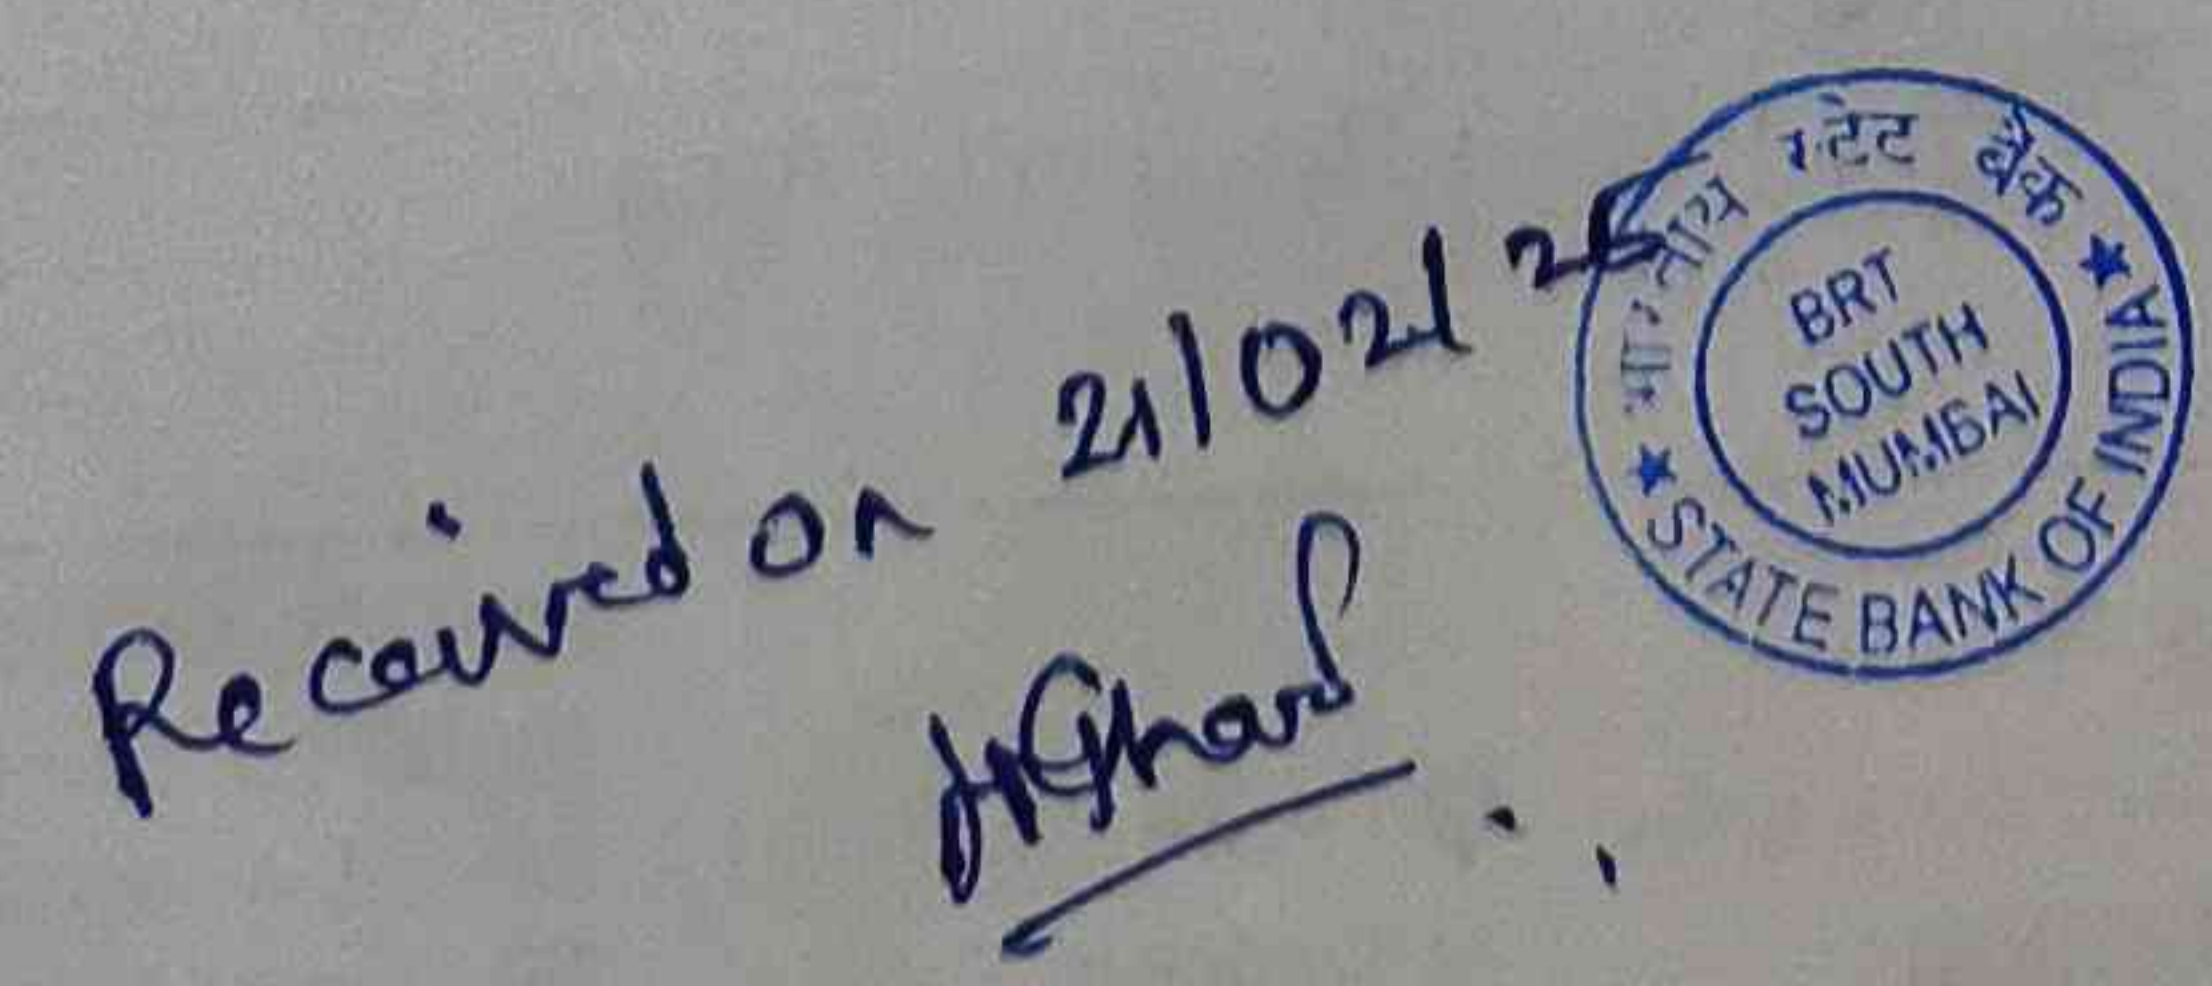 Recaived on 21/02/2
भारतीय स्टेट बैंक
BRT
SOUTH
MUMBAI
★ STATE BANK OF INDIA ★